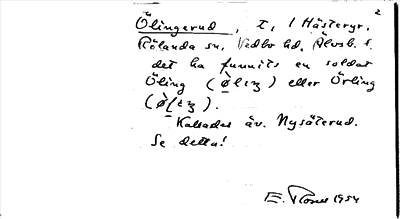 2
Ölingerud, t, 1 Hästeryr,
Rölanda sn, Vedbo hd, Älvsb. l.
det ha funnits en soldat
Öling (Ølıŋ) eller Örling
Kallades äv. Nysäterud.
Se detta!
E. 1954